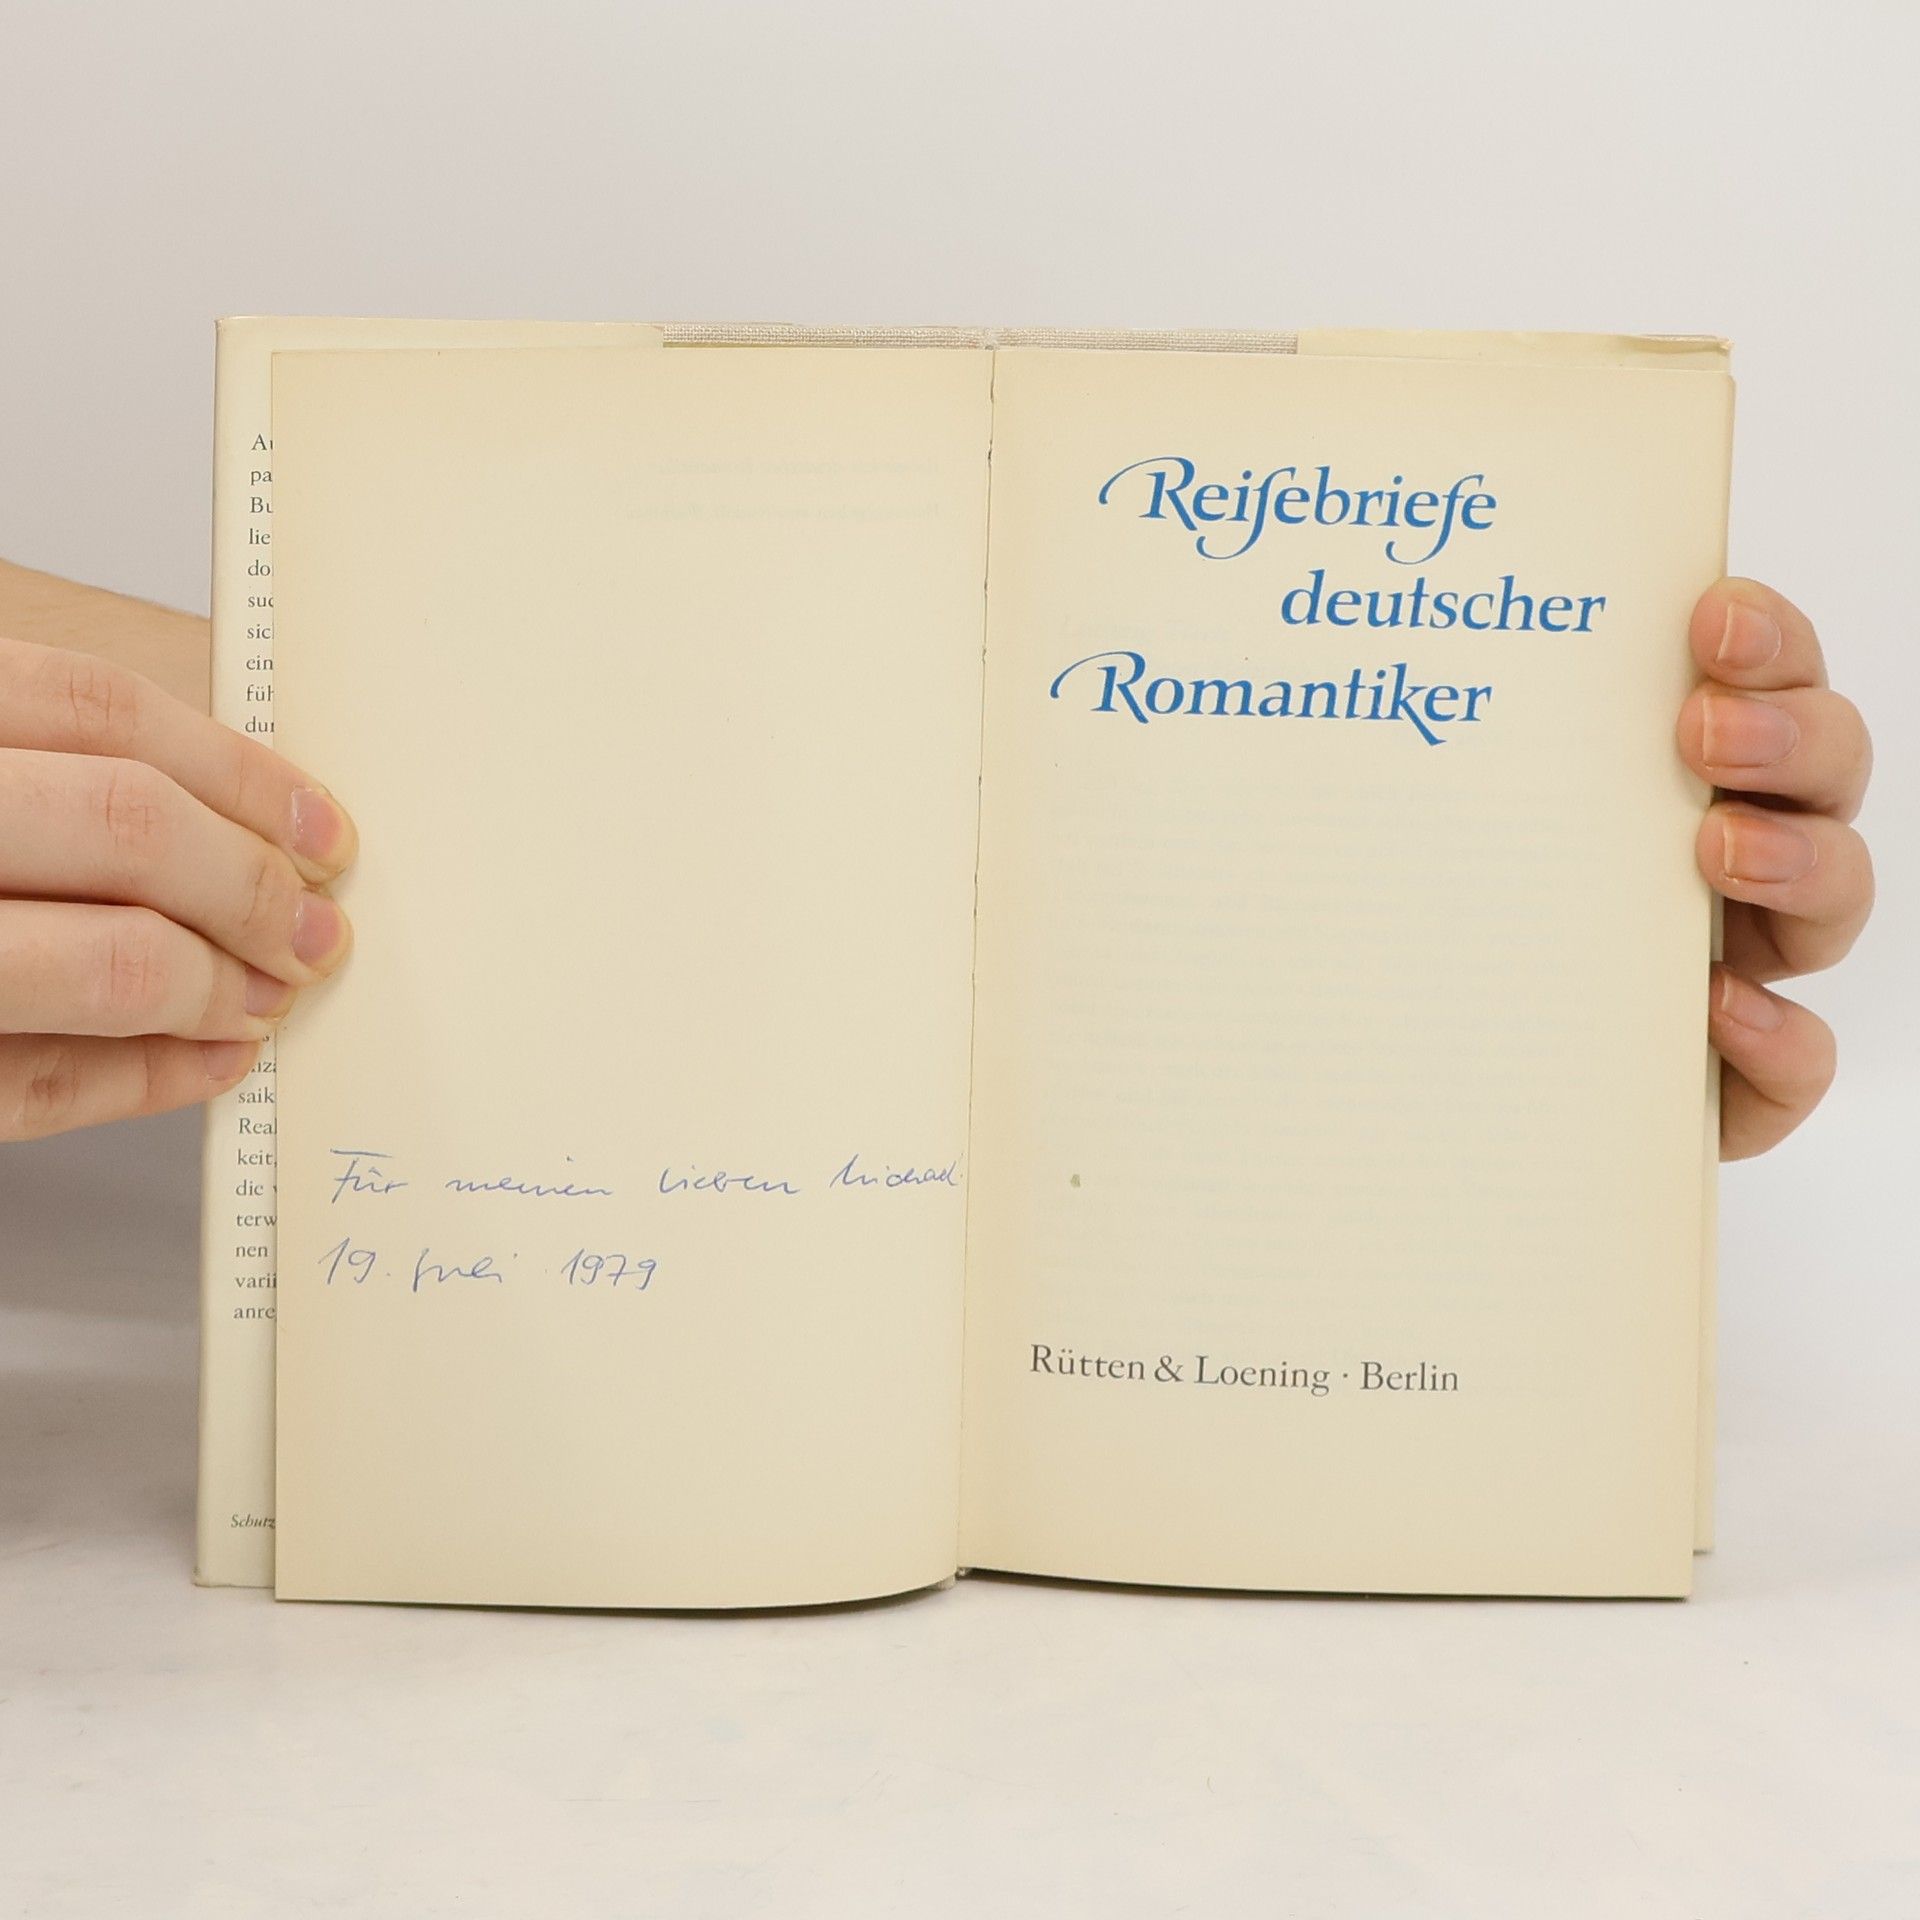 Au
pa
Bu
lie
do
suc
sic
ein
füh
dur
saik
Real
keit,
die
terw
nen
varii
anre
Schutz
Für meinen lieben Michael
19. Juli 1979
Reiſebriefe
deutscher
Romantiker
Rütten & Loening · Berlin